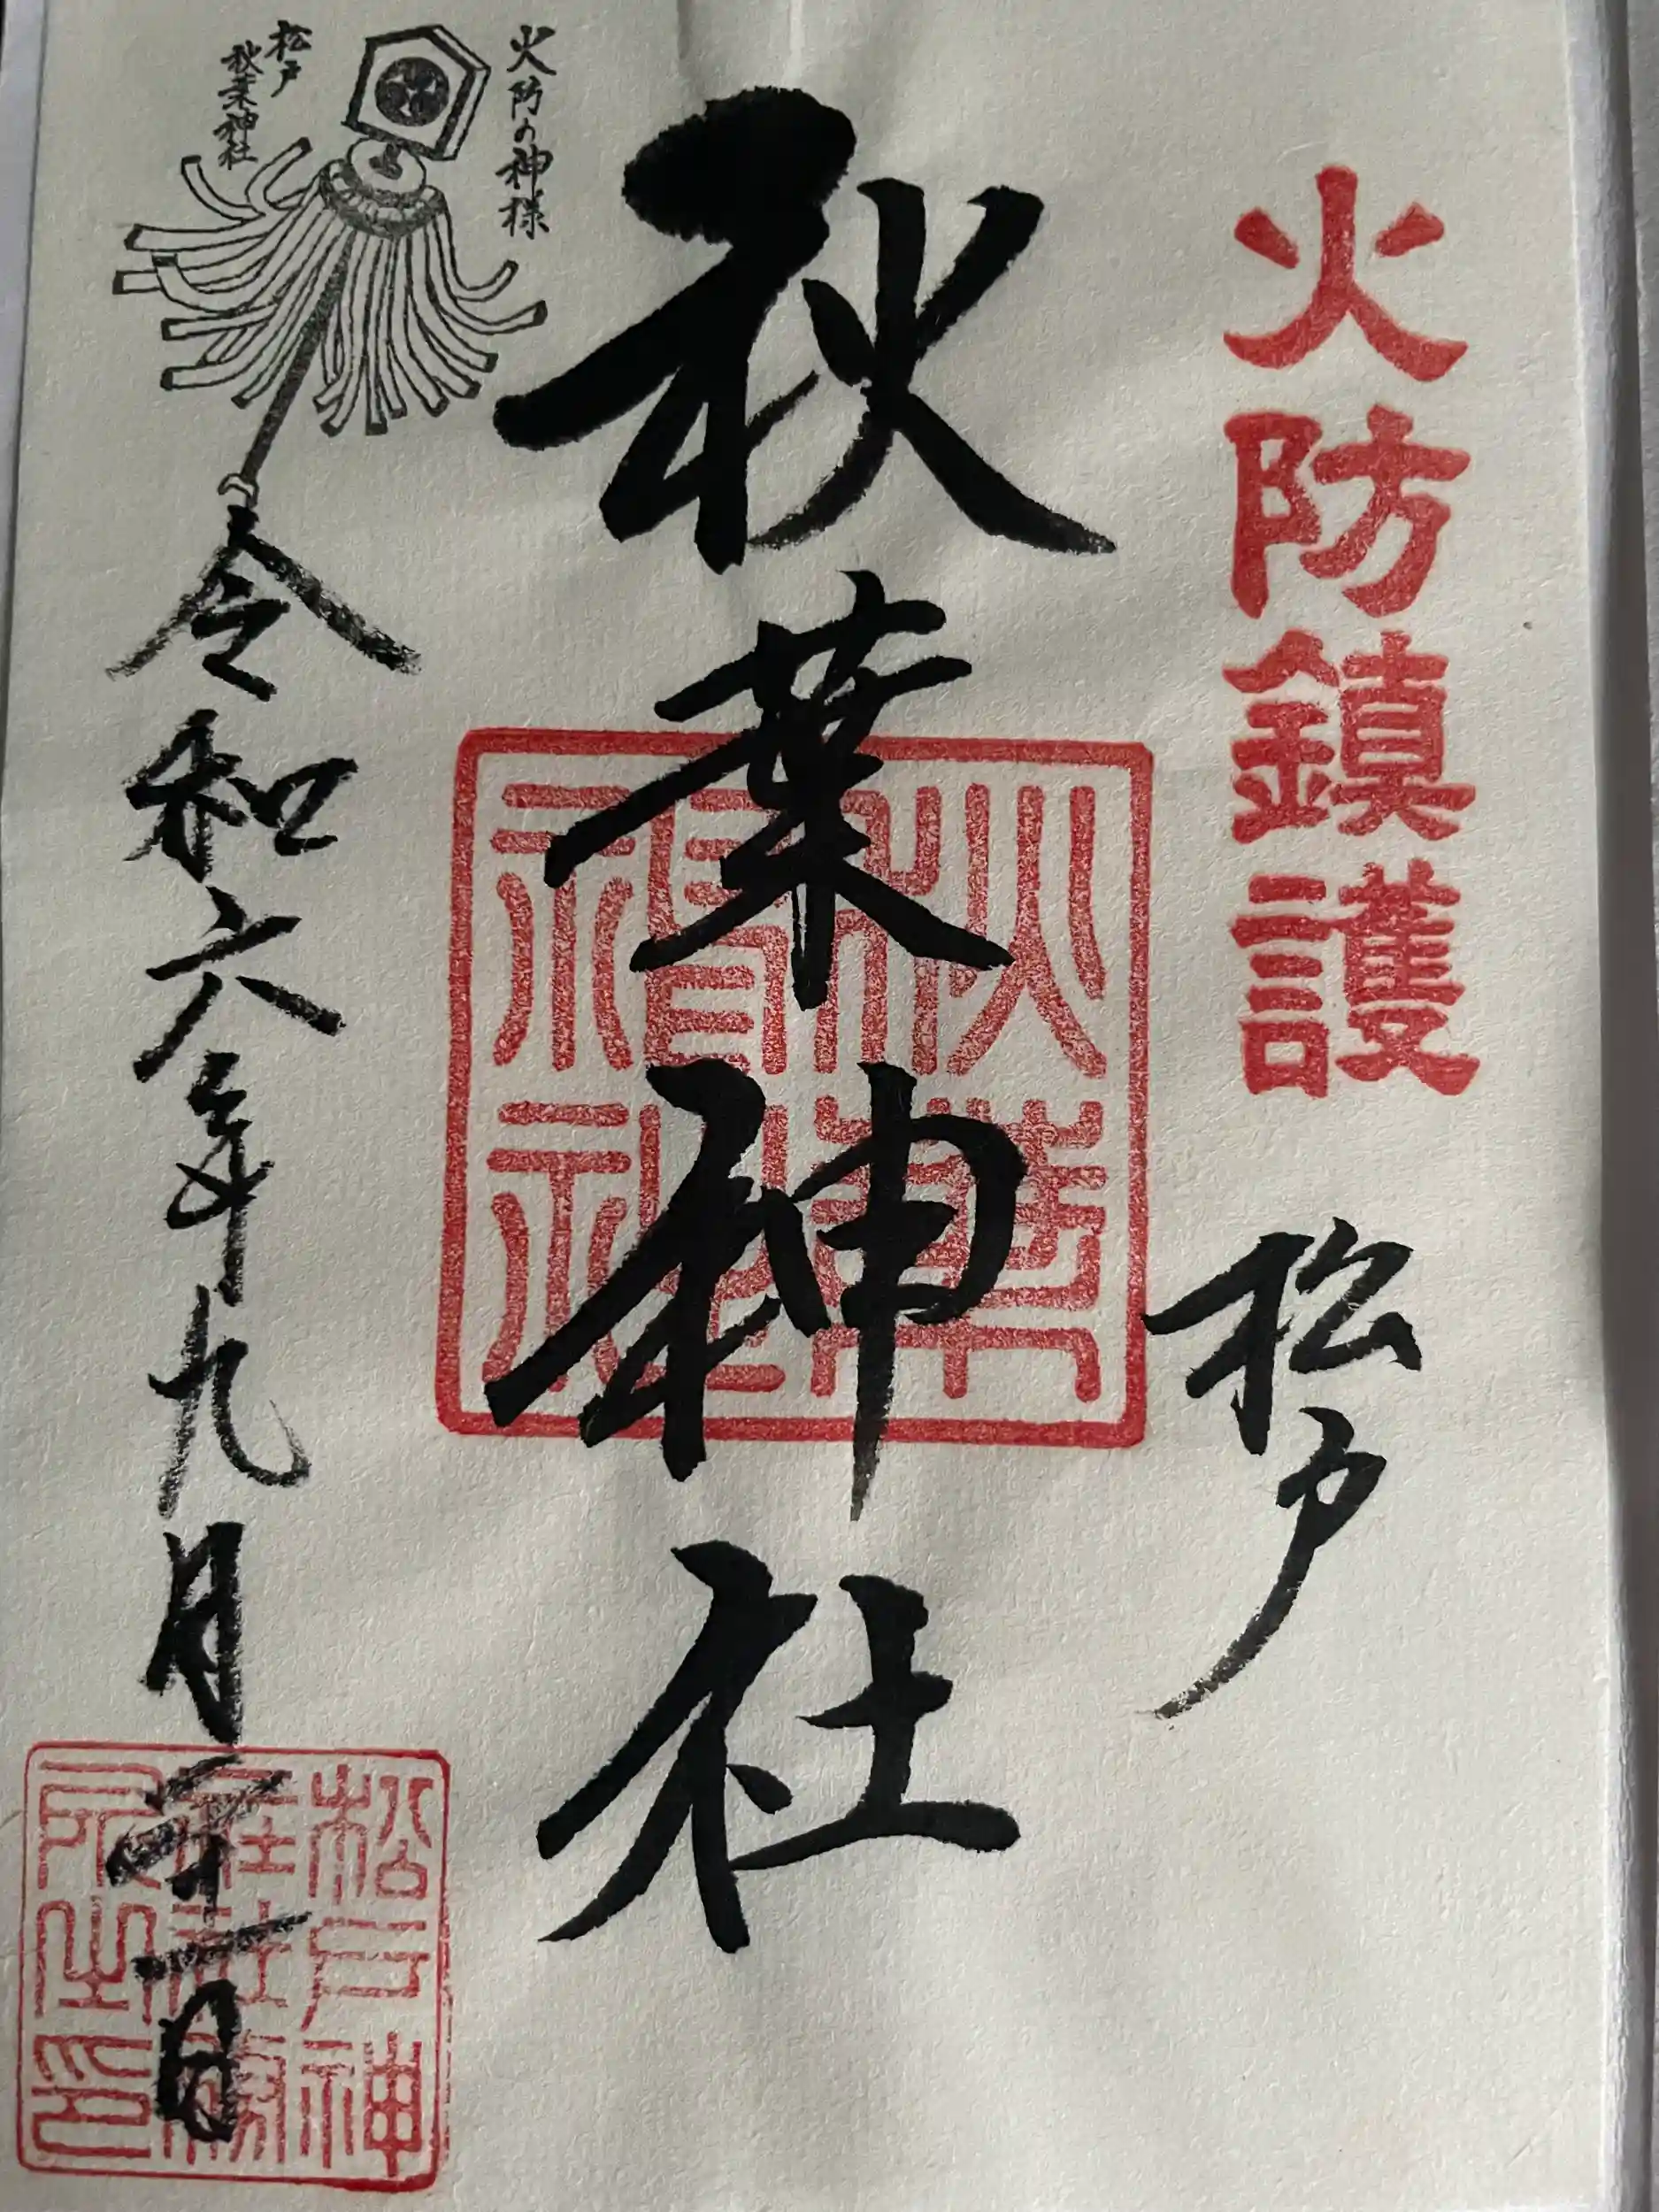 火防鎮護
松戸
秋葉神社
火防の神様
松戸
秋葉神社
令和六年九月二十一日
松戸神
社務
所之印